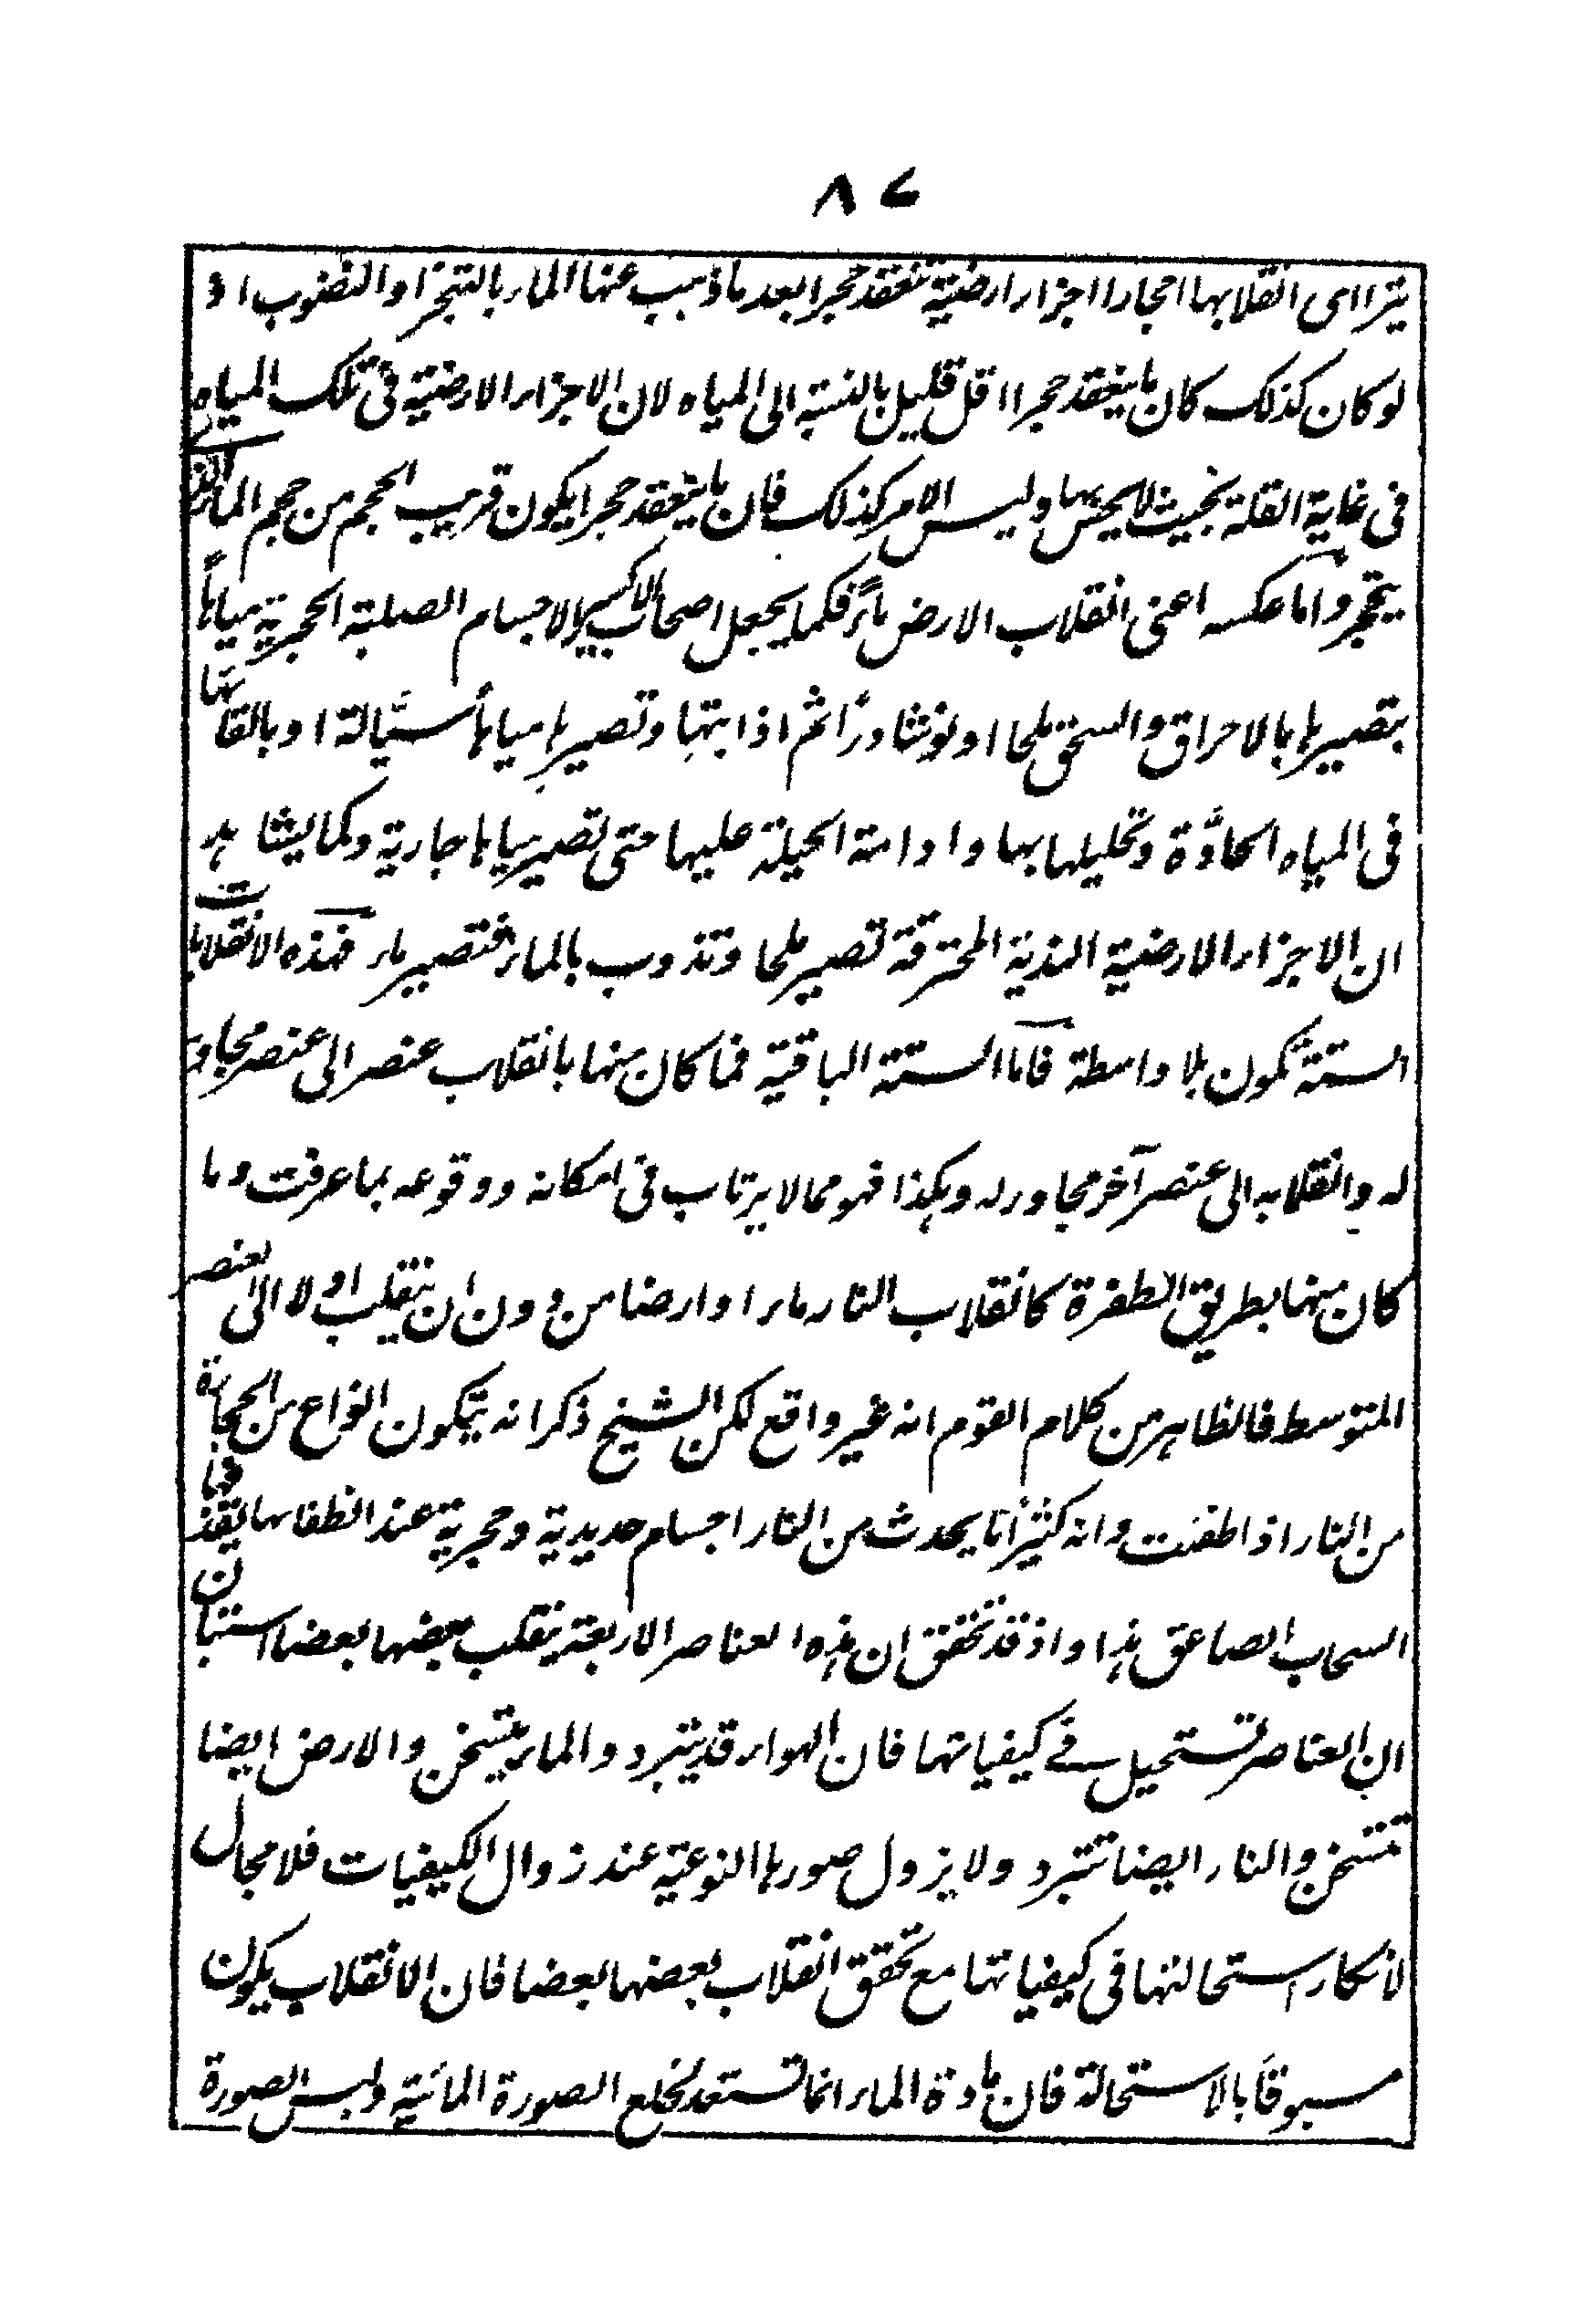 ٨٧
يترااى انقلابها احجارا اجزاء ارضية تنعقد حجرا بعد ما ذهب عنها الماء بالتبخر او النضوب اذ
لو كان كذلك كان ما ينعقد حجرا اقل قليل بالنسبة الى المياه لان الاجزاء الارضية فى تلك المياه
فى غاية القلة بحيث لا يحس بها وليس الامر كذلك فان ما ينعقد حجرا يكون قريب الحجم من حجم الماء الذى
يتحجر واما عكسه اعنى انقلاب الارض ماءً فكما يجعل اصحاب الاكسير الاجسام الصلبة الحجرية مياهاً
بتصييرها بالاحراق والسحق ملحا او نوشادرًا ثم اذابتها وتصييرها مياهاً سيّالة او بالقائها
فى المياه الحادّة وتحليلها بها وادامة الحيلة عليها حتى تصير مياها جارية وكما يشاهد
ان الاجزاء الارضية الندية المحترقة تصير ملحا وتذوب بالماء فتصير ماء فهذه الانقلابات
الستة تكون بلا واسطة فاما الستة الباقية فما كان منها بانقلاب عنصر الى عنصر مجاور
له وانقلابه الى عنصر آخر مجاور له وهكذا فهو مما لا يرتاب فى امكانه ووقوعه بما عرفت وما
كان منها بطريق الطفرة كانقلاب النار ماء او ارضا من دون ان ينقلب اولا الى العنصر
المتوسط فالظاهر من كلام القوم انه غير واقع لكن الشيخ ذكر انه يتكون انواع من الحجارة
من النار اذا اطفئت وانه كثيرًا ما يحدث من النار اجسام حديدية وحجرية عند انطفائها يقذفها
السحاب الصاعق هذا واذ قد تحقق ان هذه العناصر الاربعة ينقلب بعضها بعضا استبان
ان العناصر تستحيل فى كيفياتها فان الهواء قد يتبرد والماء يتسخن والارض ايضا
تتسخن والنار ايضا تتبرد ولا يزول صورها النوعية عند زوال الكيفيات فلا مجال
لانكار استحالتها فى كيفياتها مع تحقق انقلاب بعضها بعضا فان الانقلاب يكون
مسبوقاً بالاستحالة فان مادة الماء انما تستعد لخلع الصورة المائية ولبس الصورة